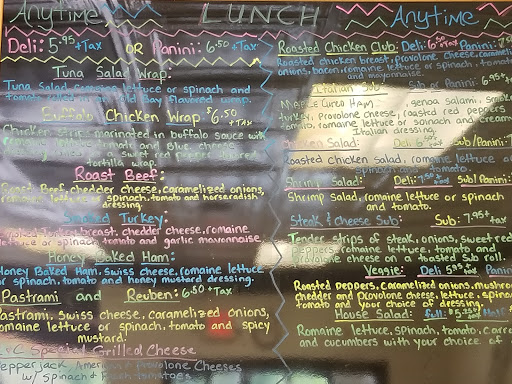 Anytime LUNCH Anytime
Deli: 5.95 + Tax OR Panini: 6.50 + Tax
Tuna Salad Wrap:
Tuna Salad, romaine lettuce or spinach and
tomato in an Old Bay flavored wrap.
Buffalo Chicken Wrap $6.50 + TAX
Chicken strips marinated in buffalo sauce with
tomato and blue cheese
a sweet red pepper
tortilla wrap.
Roast Beef:
Roast Beef, chedder cheese, caramelized onions,
romaine lettuce or spinach, tomato and horseradish
dressing.
Smoked Turkey:
Smoked turkey breast, chedder cheese, romaine
lettuce or spinach, tomato and garlic mayonnaise
Honey Baked Ham:
Honey Baked Ham, swiss cheese, romaine lettuce
or spinach, tomato and honey mustard dressing.
Pastrami and Reuben: 6.50 + Tax
Pastrami, swiss cheese, caramelized onions,
romaine lettuce or spinach, tomato and spicy
mustard.
Special Grilled Cheese
Pepperjack, American & Provolone Cheeses
w/ Spinach & Fresh tomatoes
Roasted Chicken Club: Deli: 6.50 + tax Panini:
Roasted chicken breast, provolone cheese, caramelized
onions, bacon, romaine lettuce or spinach, tomato
and mayonnaise
Italian Sub Sub or Panini: 6.95 +
Maple Cured Ham, genoa salami, smoked
turkey, provolone cheese, roasted red peppers
tomato, romaine lettuce or spinach and creamy
Italian dressing.
Chicken Salad: Deli: Sub/Panini:
Roasted chicken salad, romaine lettuce or
spinach and tomato.
Shrimp Salad: Deli: 7.50 + tax Sub/Panini:
Shrimp salad, romaine lettuce or spinach
and tomato.
Steak & Cheese Sub: Sub: 7.95 + tax
Tender strips of steak, onions, sweet red
peppers, romaine lettuce, tomato and
provolone cheese on a toasted Sub roll.
Veggie: Deli 5.95 + tax Panini
Roasted peppers, caramelized onions, mushrooms
chedder and provolone cheese, lettuce, spinach
tomato and your choice of dressing.
House Salad: full: $5.25 + tax half:
Romaine lettuce, spinach, tomato, carrots
and cucumbers with your choice of